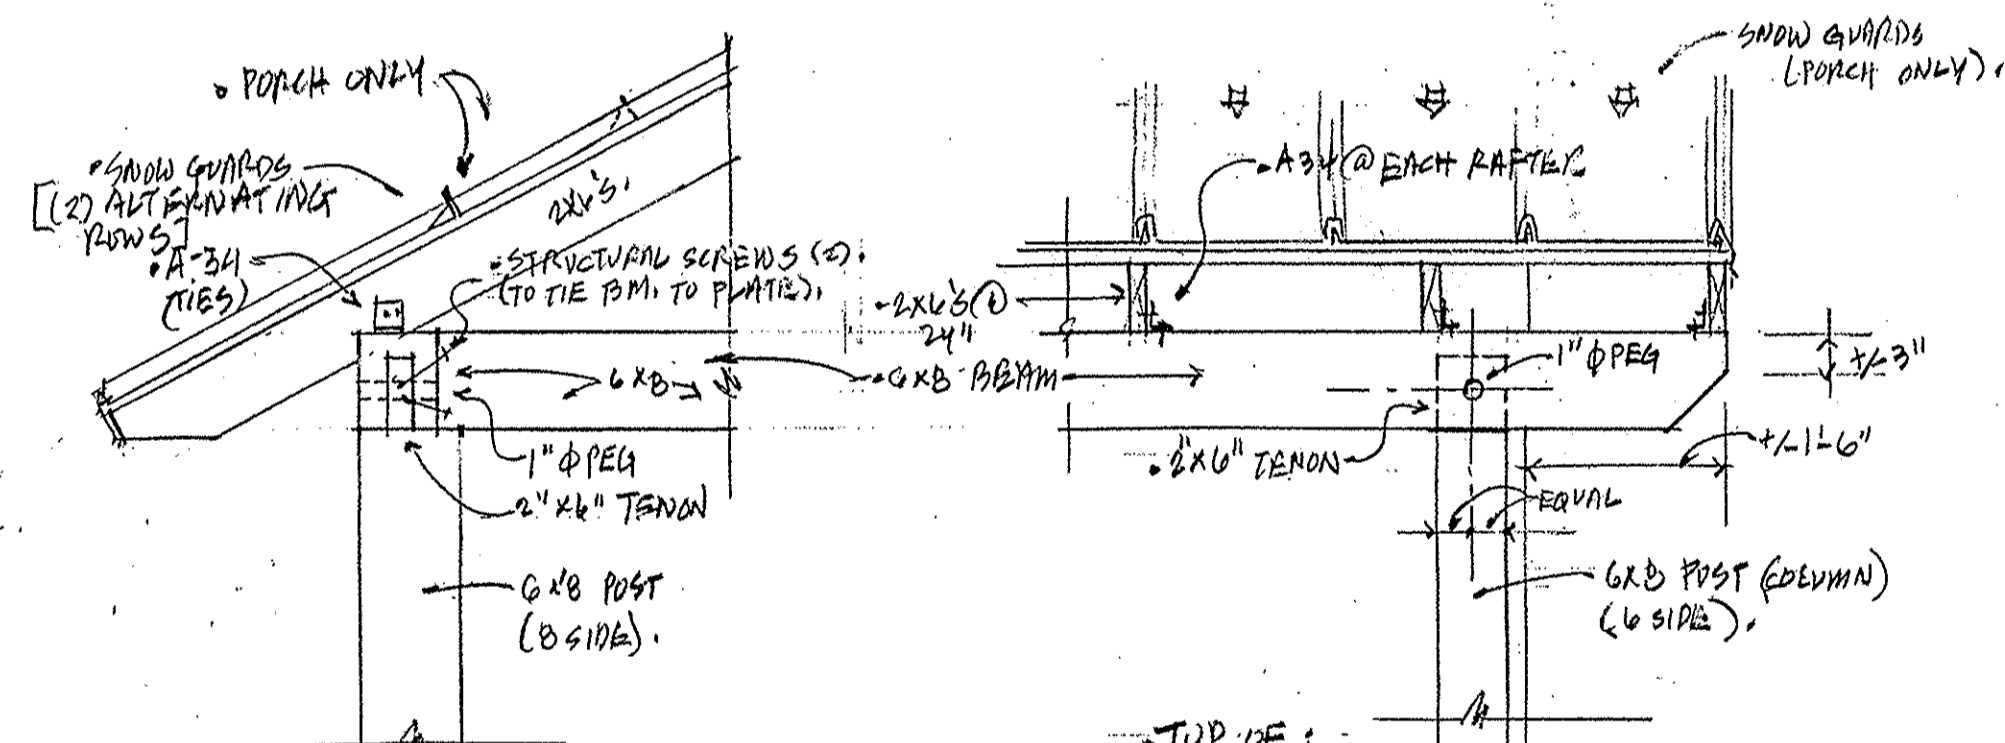 • PORCH ONLY
• SNOW GUARDS
[(2) ALTERNATING
ROWS]
• A-34
(TIES)
2X6'S.
• STRUCTURAL SCREWS (2).
(TO TIE BM. TO PLATE).
6X8
1" Φ PEG
2" X 6" TENON
6 X 8 POST
(8 SIDE).
SNOW GUARDS
(PORCH ONLY).
• A34 @ EACH RAFTER
• 2X6'S @
24"
• 6X8 BEAM
1" Φ PEG
+/-3"
• 2"X6" TENON
+/-1'-6"
EQUAL
6X8 POST (COLUMN)
(6 SIDE).
• TOP OF :